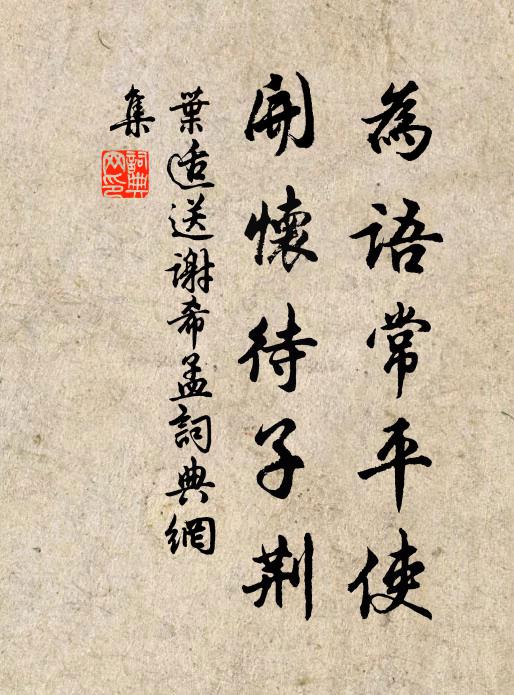 為語常平使
開懷待子荆
葉适送謝希孟詞典網
集
詞典
网印